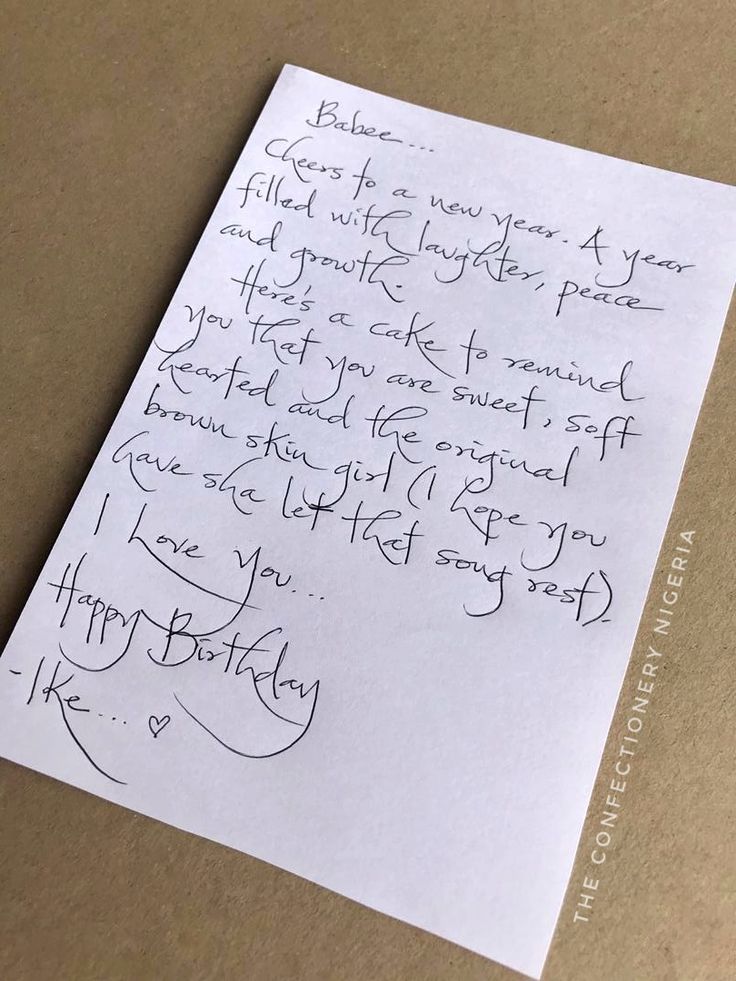 Babee...
Cheers to a new year. A year
filled with laughter, peace
and growth.
Here's a cake to remind
you that you are sweet, soft
hearted and the original
brown skin girl (I hope you
have sha let that song rest).
I Love You...
Happy Birthday
-Ike... ♡
THE CONFECTIONERY NIGERIA